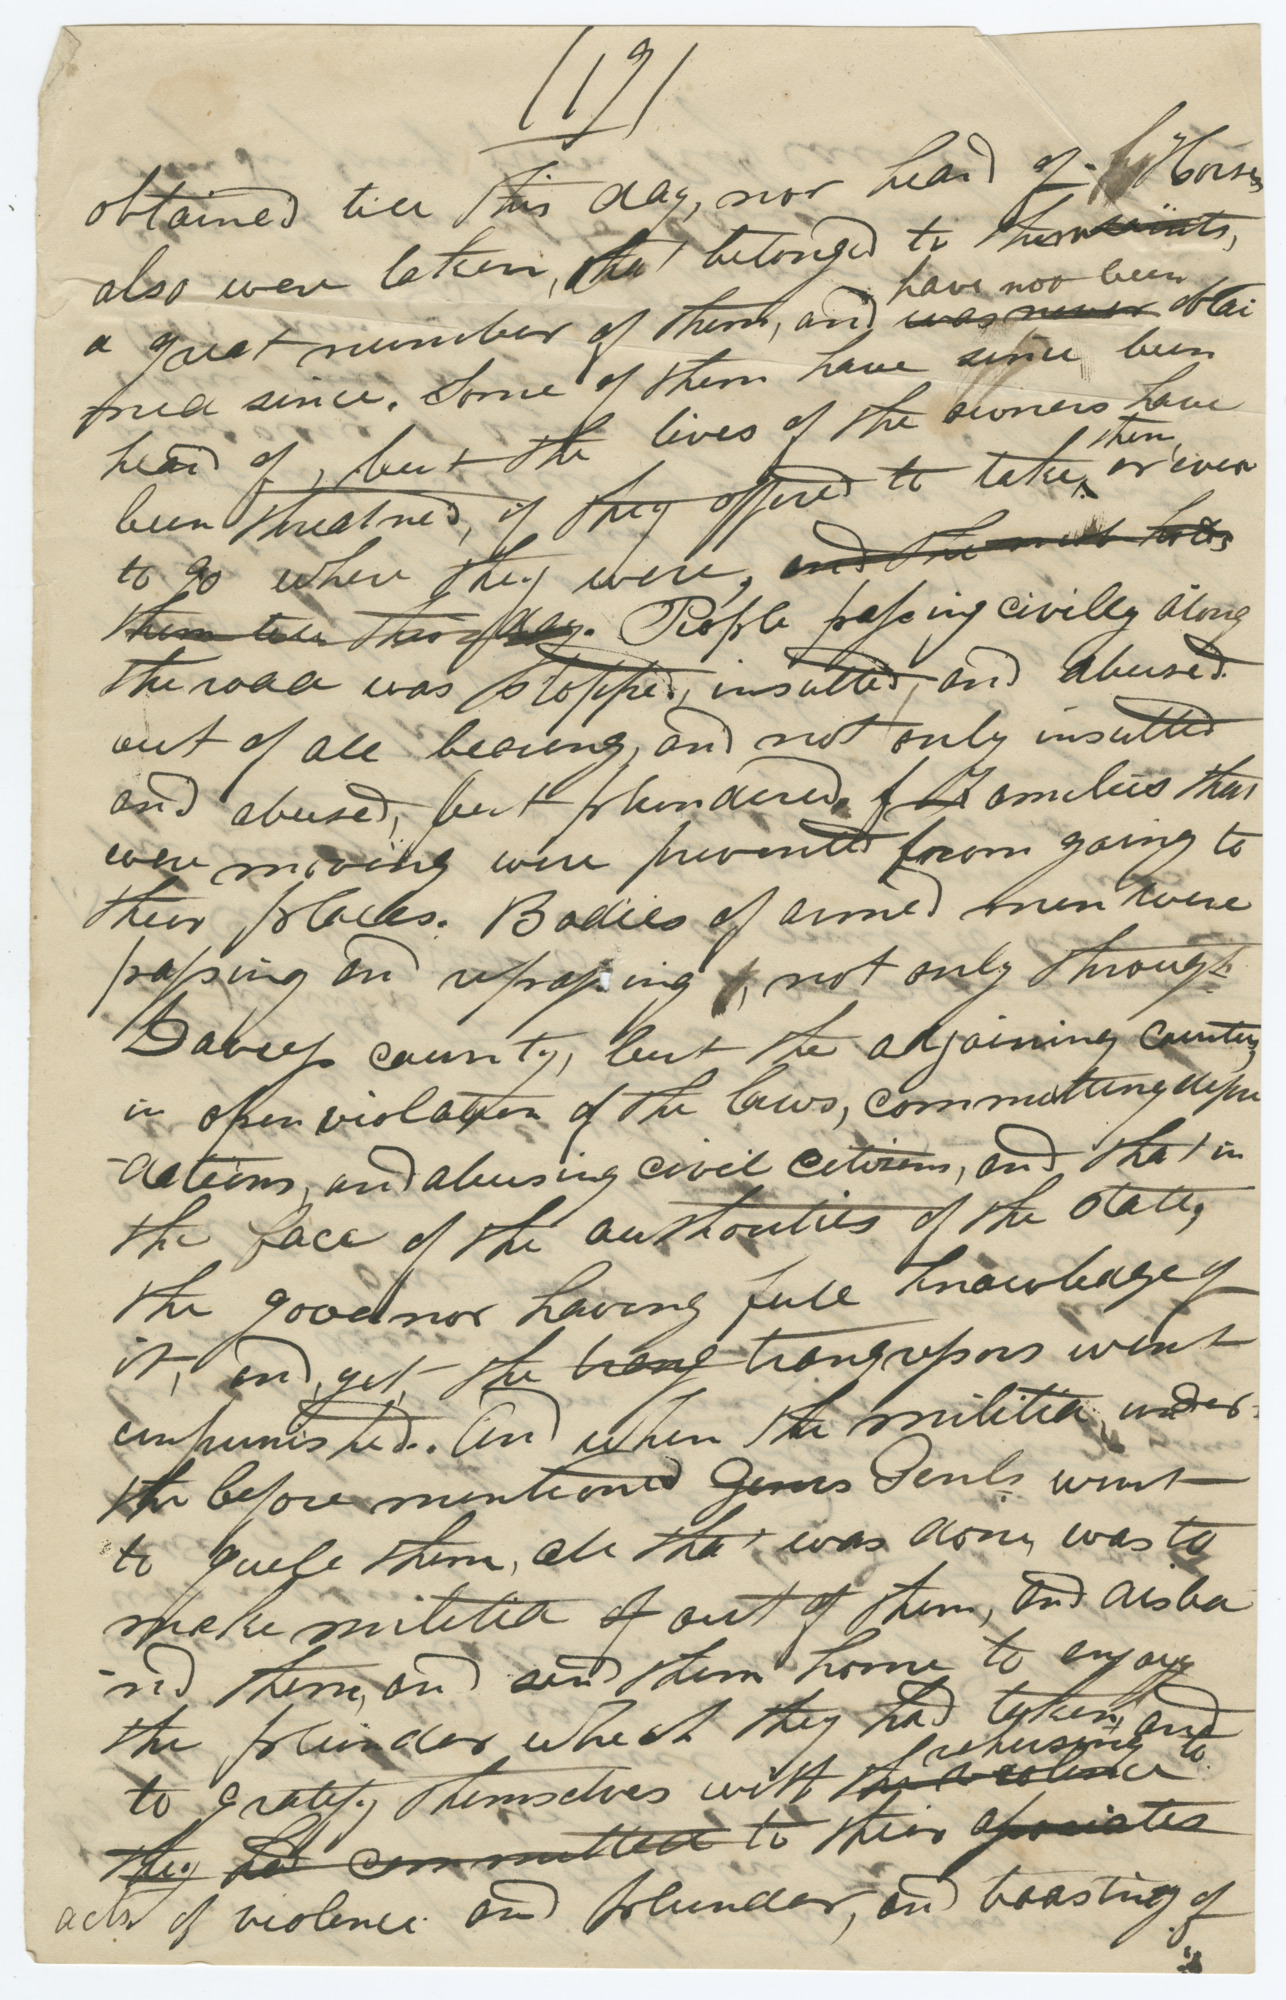 (19)
obtained till this day, nor heard of. Horses
also were taken, that belonged to the saints,
a great number of them, and was never have not been obtai
ned since. Some of them have since been
heard of, but the lives of the owners have
been threatned, if they offered to take them, or even
to go where they were, and the mob holds
them till this day. People passing civilly along
the road was stopped, insulted, and abused
out of all bearing, and not only insulted
and abused, but plundered. Families that
were moving were prevented from going to
their places. Bodies of armed men were
passing and repassing, not only through
Daviess county, but the adjoining counties,
in open violation of the laws, committing depre
-dations, and abusing civil citizens, and that in
the face of the authorities of the state,
the governor having full knowledge of
it, and yet, the trang trangressors went
unpunished. And when the militia, under
the before mentioned Genrs Genls. went
to quell them, all that was done, was to
make militia of out of them, and disba
-nd them, and send them home to enjoy
the plunder which they had taken, and
to gratify themselves with the violence rehersing to
they had committed to their associates
acts of violence and plunder, and boasting of